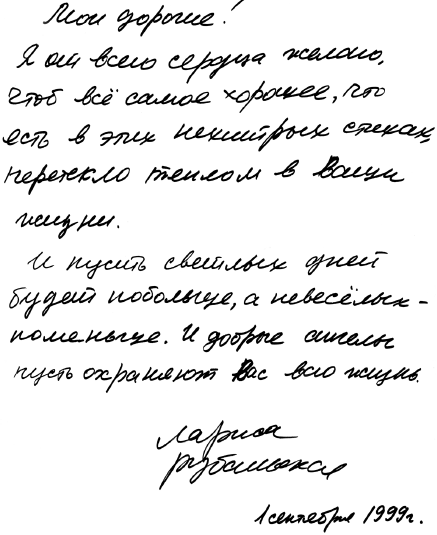 Мои дорогие!
Я от всего сердца желаю,
чтоб всё самое хорошее, что
есть в этих нехитрых стихах,
перетекло теплом в Ваши
жизни.
И пусть светлых дней
будет побольше, а невесёлых -
поменьше. И добрые ангелы
пусть охраняют Вас всю жизнь.
Лариса
Рубальская
1 сентября 1999 г.